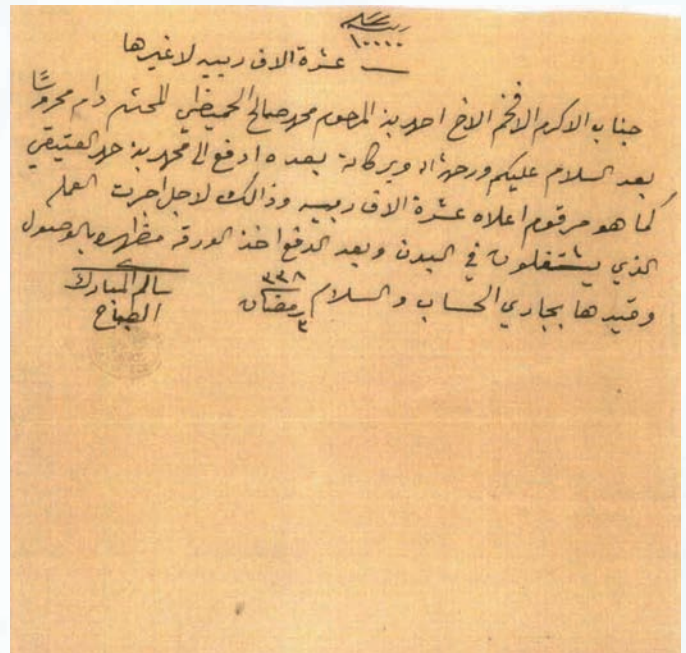 ربيه
١٠٠٠٠
عشرة الاف ربيه لاغيرها
جناب الاكرم الافخم الاخ احمد بن المرحوم محمد صالح الحميضي المحترم دام محروسًا
بعد السلام عليكم ورحمة الله وبركاته بعده ادفع الى محمد بن حمد العتيقي
كما هو مرقوم اعلاه عشرة الاف ربيه وذالك لاجل اجرت العمله
الذي يشتغلون في البدن وبعد الدفع اخذ الورقه مظهره بالوصول
وقيدها بجاري الحساب والسلام ٣ رمضان ٣٣٨
سالم المبارك
الصباح